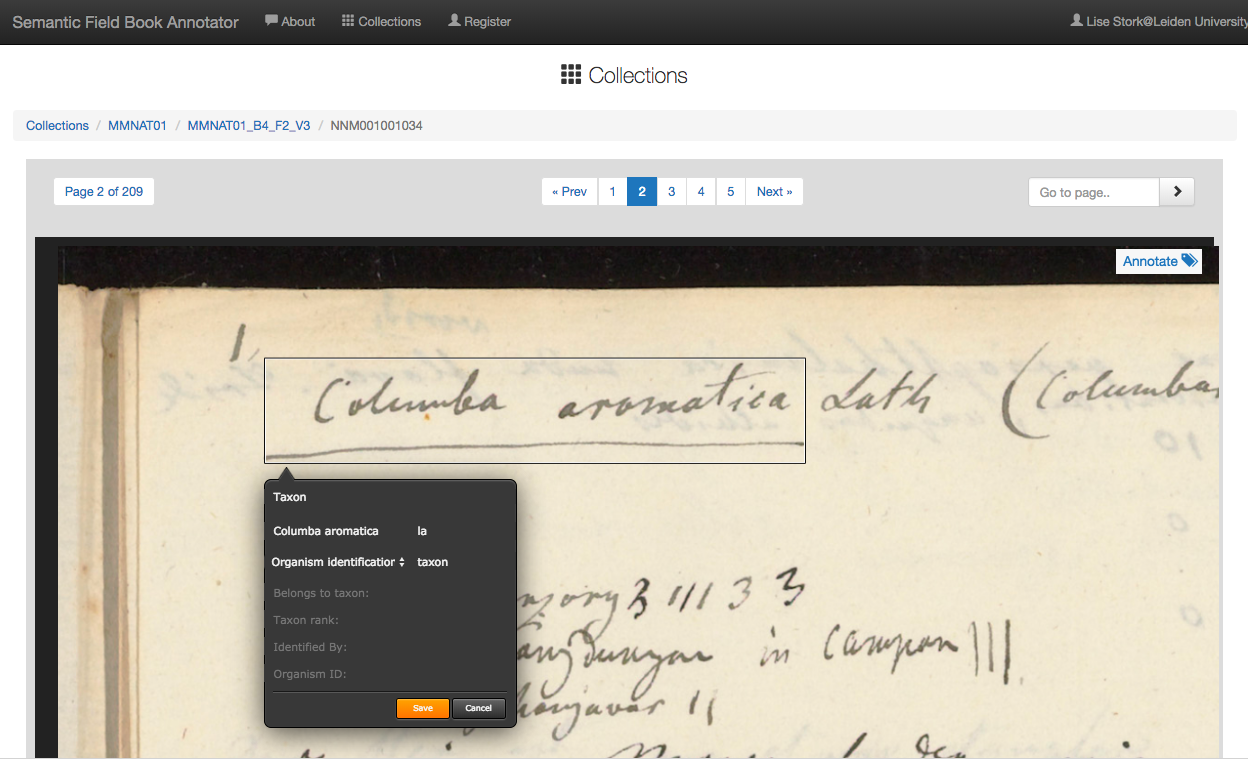 Semantic Field Book Annotator About Collections Register Lise Stork@Leiden University
Collections
Collections / MMNAT01 / MMNAT01_B4_F2_V3 / NNM001001034
Page 2 of 209 « Prev 1 2 3 4 5 Next » Go to page..
Annotate
1
Columba aromatica Lath (Columba
Taxon
Columba aromatica la
Organism identification taxon
Belongs to taxon:
Taxon rank:
Identified By:
Organism ID:
Save Cancel
in campon